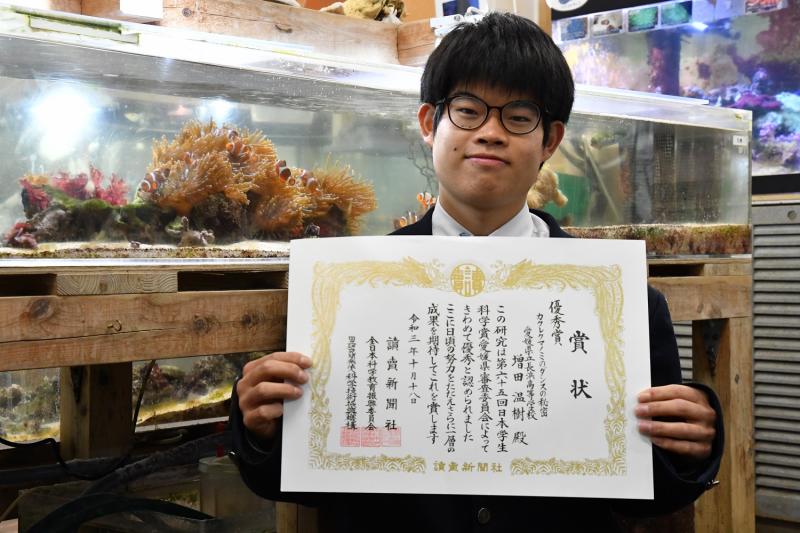 賞状
優秀賞
カクレクマノミのダンスの秘密
愛媛県立長浜高等学校
増田温樹 殿
この研究は第六十五回日本学生
科学賞愛媛県審査委員会によって
きわめて優秀と認められました
ここに日頃の努力をたたえさらに一層の
成果を期待してこれを賞します
令和三年十月十八日
讀賣新聞社
全日本科学教育振興委員会
科学技術振興機構
讀賣新聞社